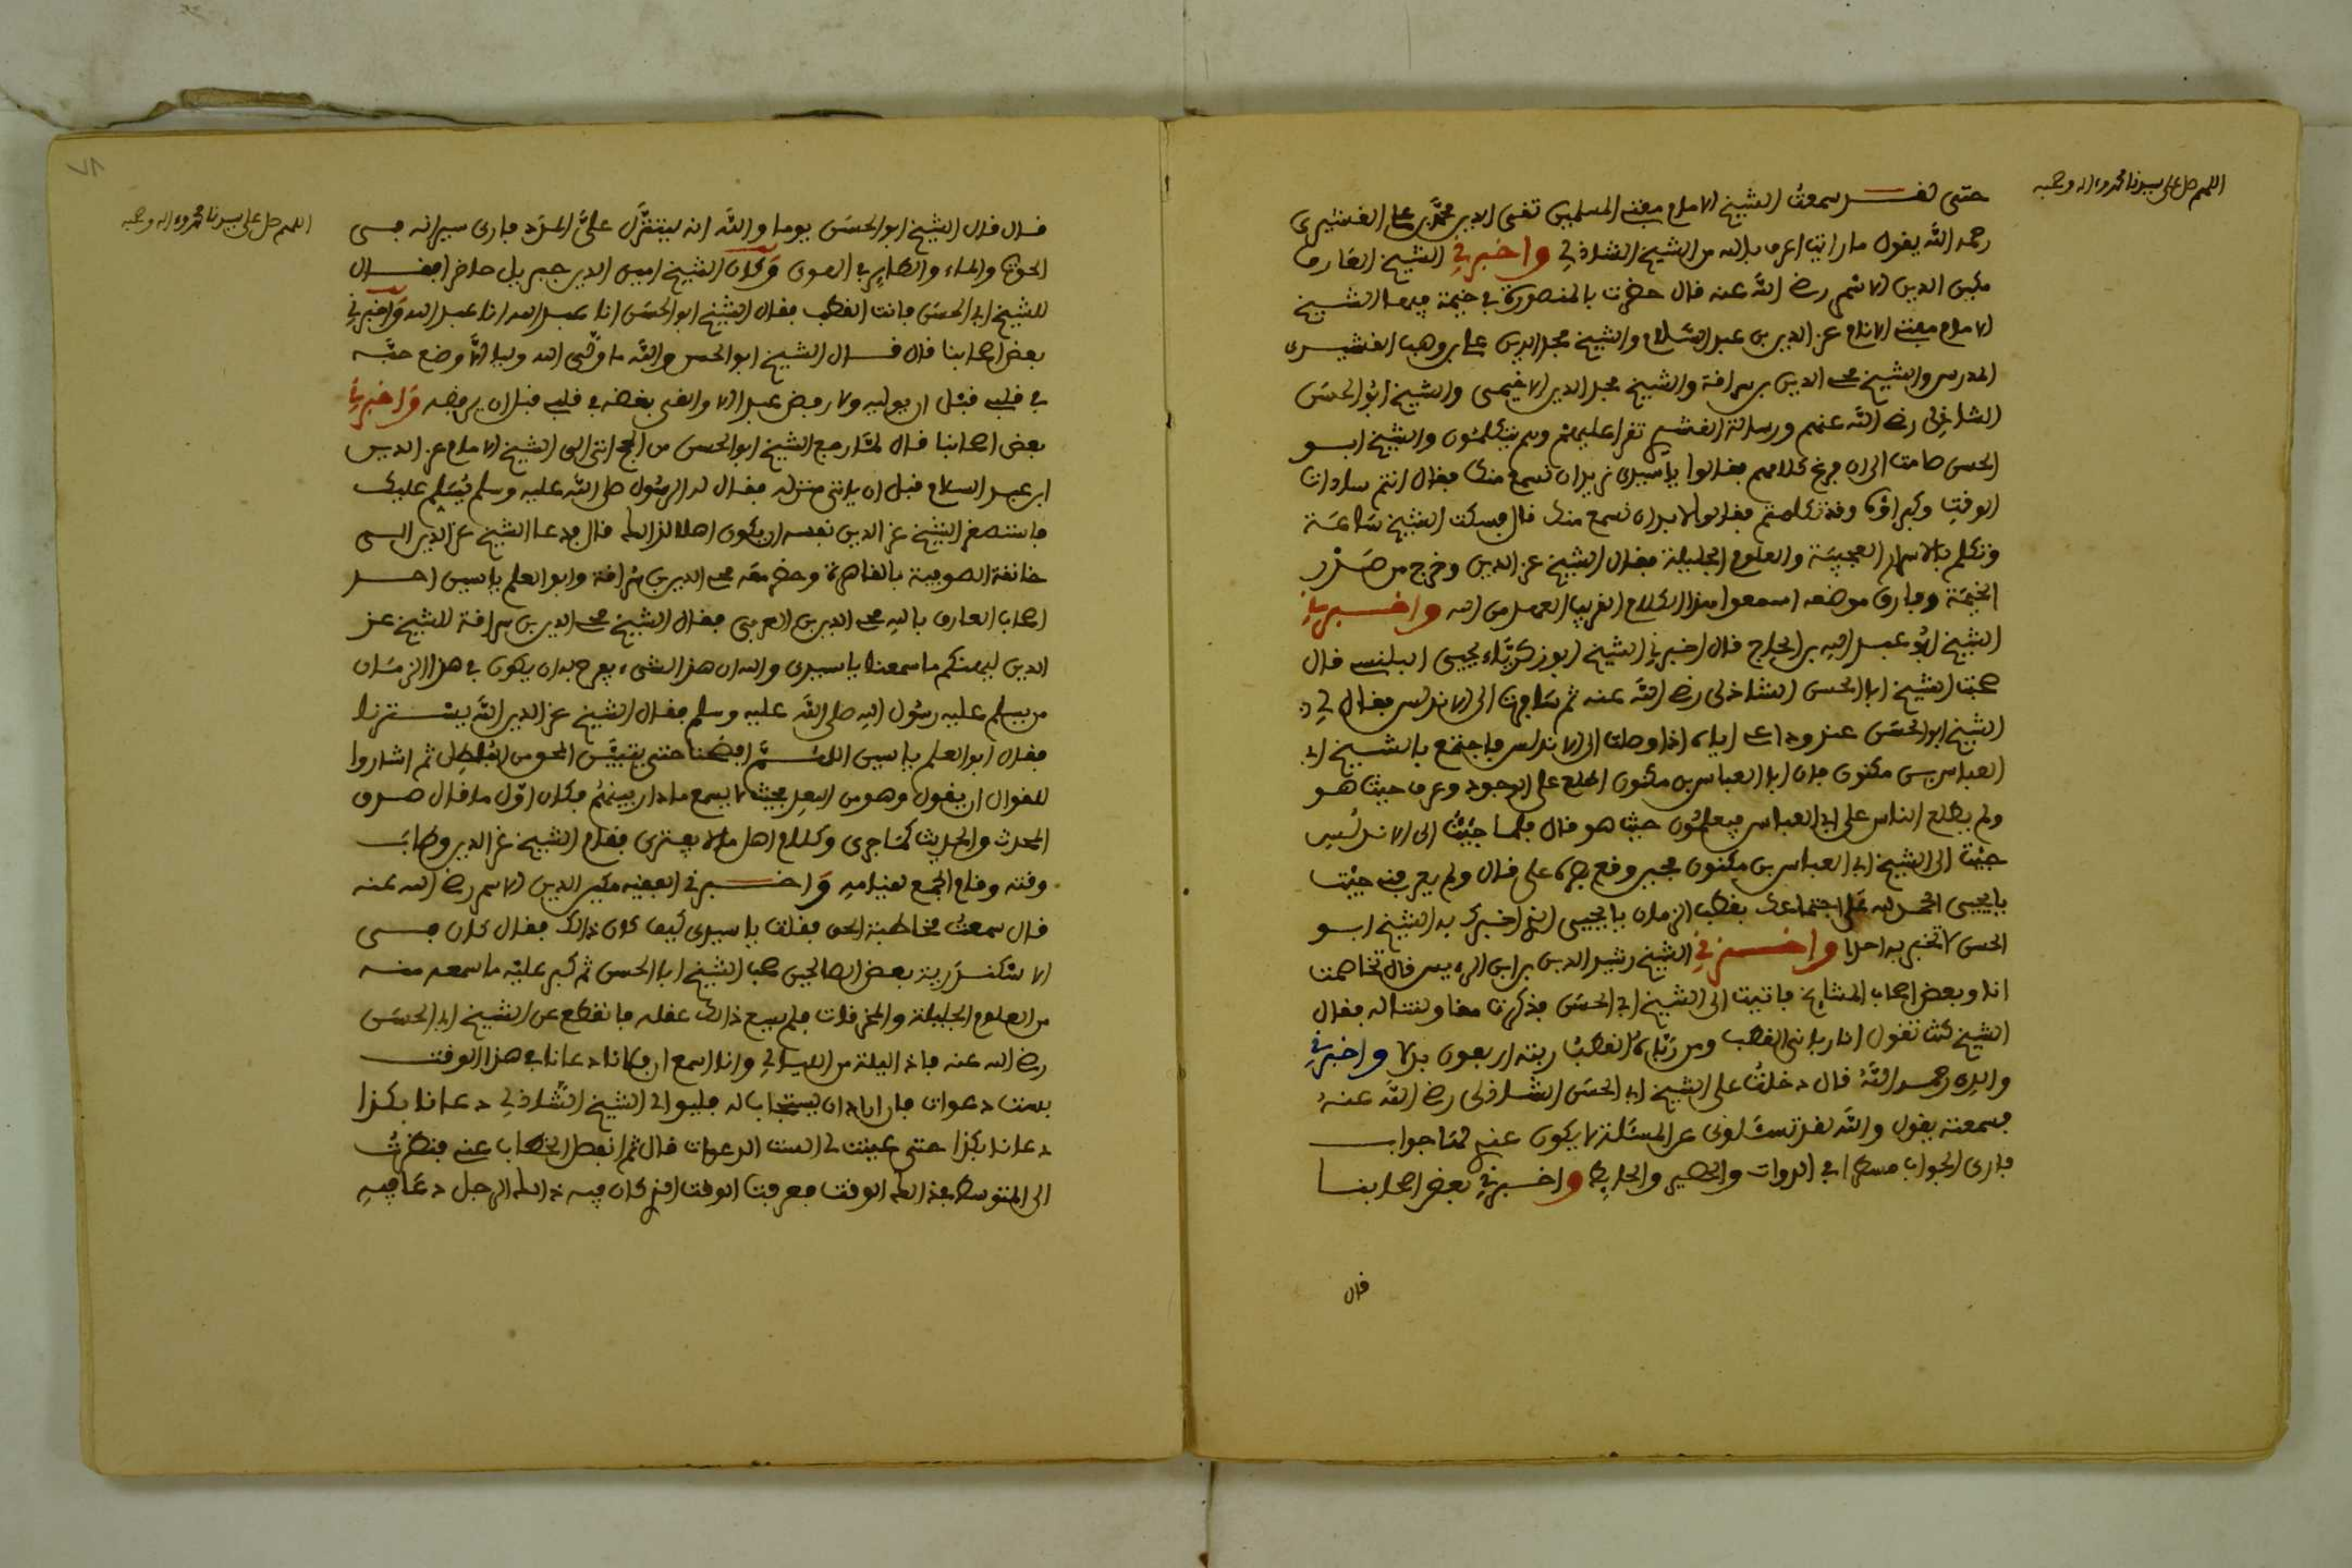 اللهم صل على سيدنا محمد وءاله وصحبه
حتى لقد سمعت الشيخ الامام مفتي المسلمين تقي الدين محمد بن علي القشيري
رحمه الله يقول ما رايت اعرف بالله من الشيخ الشاذلي واخبرني الشيخ العارف
مكين الدين الاسمر رضي الله عنه قال حضرت بالمنصورة في خيمة فيها الشيخ
الامام مفتي الانام عز الدين بن عبد السلام والشيخ مجد الدين علي بن وهب القشيري
المدرس والشيخ محي الدين بن سراقة والشيخ مجد الدين الاخيمي والشيخ ابو الحسن
الشاذلي رضي الله عنهم ورسالة القشيري تقرا عليهم وهم يتكلمون والشيخ ابو
الحسن صامت الى ان فرغ كلامهم فقالوا يا سيدي نريد ان نسمع منك فقال انتم سادات
الوقت وكبراؤه وقد تكلمتم فقالوا لا بد ان نسمع منك قال فسكت الشيخ ساعة
وتكلم بالاسرار العجيبة والعلوم الجليلة فقال الشيخ عز الدين وخرج من صدر
الخيمة وفارق موضعه اسمعوا هذا الكلام الغريب العهد من الله واخبرني
الشيخ ابو عبد الله بن الحاج قال اخبرني الشيخ ابو زكرياء يحيى البلنسي قال
صحبت الشيخ ابا الحسن الشاذلي رضي الله عنه ثم سافرت الى الاندلس فقال لي
الشيخ ابو الحسن عند وداعي اياه اذا وصلت الى الاندلس فاجتمع بالشيخ ابي
العباس بن مكنون فان ابا العباس بن مكنون اطلع على الوجود وعرف حيث هو
ولم يطلع الناس على ابي العباس فيعلمون حيث هو قال فلما جئت الى الاندلس
جئت الى الشيخ ابي العباس بن مكنون فحين وقع بصره علي قال ولم يعرفني جئت
يا يحيى الحمد لله على اجتماعك بقطب الزمان يا يحيى الذي اخبرك به الشيخ ابو
الحسن لا تخبر به احدا واخبرني الشيخ رشيد الدين بن الرايس قال تخاصمت
انا وبعض اصحاب المشايخ فاتيت الى الشيخ ابي الحسن فذكرت مقاولتنا له فقال
الشيخ كنت تقول انا رباني القطب ومن رباه القطب ربته اربعون بدلا واخبرني
والدي رحمه الله قال دخلت على الشيخ ابي الحسن الشاذلي رضي الله عنه
فسمعته يقول والله لقد تسالوني عن المسئلة لا يكون عندي لها جواب
فارى الجواب مسطرا في الدوات والحصير والحايط واخبرني بعض اصحابنا
قال
٧٨
اللهم صل على سيدنا محمد وءاله وصحبه
قال قال الشيخ ابو الحسن يوما والله انه ليتنزل علي المدد فارى سيرانه في
الحوت والماء والطاير في الهوى وكان الشيخ امين الدين جبريل حاضرا فقال
للشيخ ابي الحسن فانت القطب فقال الشيخ ابو الحسن انا عبد الله انا عبد الله واخبرني
بعض اصحابنا قال قال الشيخ ابو الحسن والله ما ولى الله وليا الا وضع حبه
في قلبي قبل ان يوليه ولا رفض عبدا الا والقى بغضه في قلبي قبل ان يرفضه واخبرني
بعض اصحابنا قال لما رجع الشيخ ابو الحسن من الحج اتى الى الشيخ الامام عز الدين
ابن عبد السلام قبل ان ياتي منزله فقال له الرسول صلى الله عليه وسلم يسلم عليك
فاستصغر الشيخ عز الدين نفسه ان يكون اهلا لذالك قال فدعا الشيخ عز الدين الى
خانقة الصوفية بالقاهرة وحضر معه محي الدين بن سراقة وابو العلم ياسين احد
اصحاب العارف بالله محي الدين بن العربي فقال الشيخ محي الدين بن سراقة للشيخ عز
الدين ليهنكم ما سمعنا يا سيدي والله ان هذا لشيء يفرح به ان يكون في هذا الزمان
من يسلم عليه رسول الله صلى الله عليه وسلم فقال الشيخ عز الدين الله يسترنا
فقال ابو العلم ياسين اللهم افضحنا حتى يتبين المحق من المبطل ثم اشاروا
للقوال ان يقول وهو من البعد بحيث لا يسمع ما دار بينهم فكان اول ما قال صدق
المحدث والحديث كما جرى وكلام اهل ما لا يفترى فقام الشيخ عز الدين وطاب
وقته وقام الجمع لقيامه واخبرني الفقيه مكين الدين الاسمر رضي الله عنه
قال سمعت مخاطبة الحق فقلت يا سيدي كيف كان ذالك فقال كان في
الاسكندرية بعض الصالحين صحب الشيخ ابا الحسن ثم كبر عليه ما سمعه منه
من العلوم الجليلة والمخرقات فلم يسع ذالك عقله فانقطع عن الشيخ ابي الحسن
رضي الله عنه فاذا ليلة من الليالي وانا اسمع ان فلانا دعانا في هذا الوقت
بست دعوات فان اراد ان يستجاب له فليوالي الشيخ الشاذلي دعانا بكذا
دعانا بكذا حتى عينت لي الست الدعوات قال ثم انفصل الخطاب عني فنظرت
الى المتوسط فذالك الوقت فعرفت الوقت الذي كان فيه ذالك الرجل دعا فيه